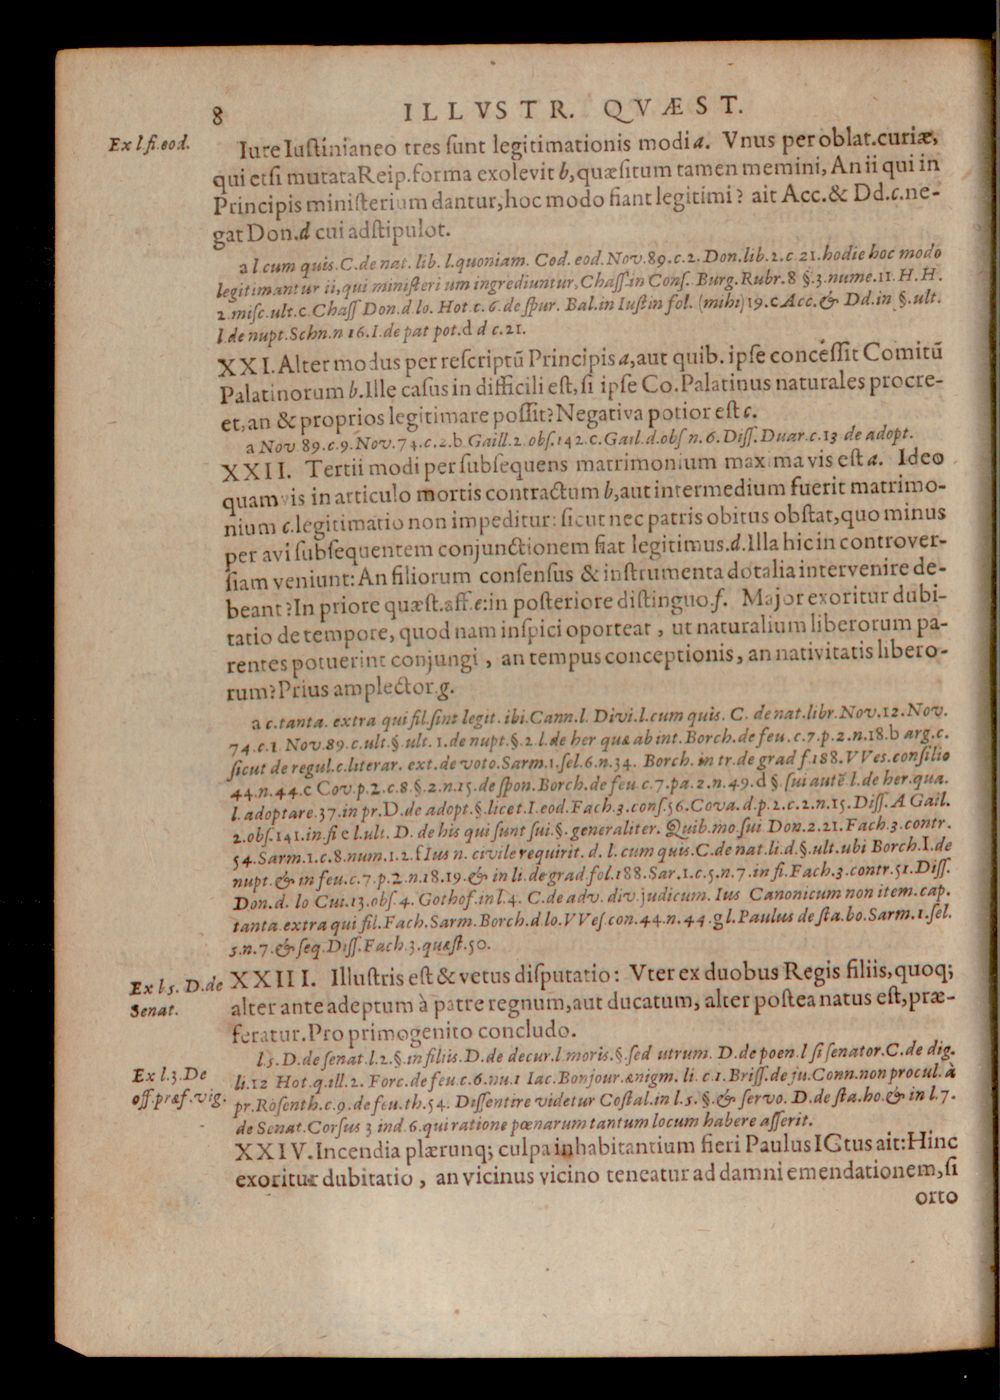 8 ILLVSTR. QVÆST.
Ex l.fi.eod.
Iure Iustinianeo tres sunt legitimationis modi a. Vnus per oblat.curiæ,
qui etsi mutata Reip.forma exolevit b,quæsitum tamen memini, An ii qui in
Principis ministerium dantur,hoc modo fiant legitimi? ait Acc.& Dd.c.ne-
gat Don.d cui adstipulor.
a l.cum quis.C.de nat. lib. l.quoniam. Cod. eod. Nov.89.c.2. Don.lib.2.c 21.hodie hoc modo
legitimantur ii,qui ministerium ingrediuntur, Chass.in Cons. Burg. Rubr.8 §.3.nume.11. H. H.
2.misc.ult.c Chass Don.d.lo. Hot.c.6.de spur. Bal.in Iustin fol. (mihi) 19.c Acc.& Dd.in §.ult.
l.de nupt.Schn.n 16.I.de pat pot.d d c.21.
XXI.Alter modus per rescriptũ Principis a,aut quib. ipse concessit Comitũ
Palatinorum b.Ille casus in difficili est, si ipse Co.Palatinus naturales procre-
et,an & proprios legitimare possit?Negativa potior est c.
a Nov 89.c.9.Nov.74.c.2.b Gaill.2 obs.142.c.Gail.d.obs n.6.Diss.Duar.c.13 de adopt.
XXII. Tertii modi per subsequens matrimonium maxima vis est a. Ideo
quamvis in articulo mortis contractum b,aut intermedium fuerit matrimo-
nium c.legitimatio non impeditur: sicut nec patris obitus obstat,quo minus
per avi subsequentem conjunctionem fiat legitimus.d.Illa hic in controver-
siam veniunt: An filiorum consensus & instrumenta dotalia intervenire de-
beant?In priore quæst.aff.e:in posteriore distinguo.f. Major exoritur dubi-
tatio de tempore, quod nam inspici oporteat, ut naturalium liberorum pa-
rentes potuerint conjungi, an tempus conceptionis, an nativitatis libero-
rum?Prius amplector.g.
a c.tanta. extra qui fil.sint legit. ibi.Cann.l. Divi.l.cum quis. C. de nat.libr.Nov.12.Nov.
74.c.1 Nov.89.c.ult.§.ult. 1.de nupt.§.2 l.de her quæ ab int. Borch.de feu.c.7.p.2.n.18.b arg.c.
sicut de regul.c.literar. ext.de voto.Sarm.1.sel.6.n.34. Borch. in tr.de grad f.188.VVes.consilio
44.n.44.c Cov.p.2.c.8.§.2.n.15.de spon.Borch.de feu c.7.pa.2.n.49.d §.sui autẽ l.de her.qua.
l.adoptare.37.in pr.D.de adopt.§.licet.I.eod.Fach.3.cons.56.Cova.d.p.2.c.2.n.15.Diss.A Gail.
2.obs.141.in.fi e l.ult. D. de his qui sunt sui.§.generaliter. Quib.mo.sui Don.2.21.Fach.3.contr.
54.Sarm.1.c.8.num.1.2.f Ius n. civile requirit. d. l.cum quis.C.de nat.li.d.§.ult.ubi Borch.I.de
nupt.& in feu.c.7.p.2.n.18.19.& in li.de grad.fol.188.Sar.1.c.5.n.7.in fi.Fach.3.contr.51.Diss.
Don.d. lo Cui.13.obs.4. Gothof.in l.4. C.de adv. div.judicum. Ius Canonicum non item.cap.
tanta.extra qui fil.Fach.Sarm.Borch.d.lo.VVes.con.44.n.44.g l.Paulus de sta.bo.Sarm.1.sel.
5.n.7.& seq.Diss.Fach.3.quæst.50.
Ex l 5. D.de
Senat.
XXIII. Illustris est & vetus disputatio: Vter ex duobus Regis filiis, quoq;
alter ante adeptum à patre regnum,aut ducatum, alter postea natus est,præ-
feratur.Pro primogenito concludo.
Ex l.3.De
off.præf.vig.
l.5.D.de senat.l.2.§.in filiis.D.de decur.l.moris.§.sed utrum. D.de poen.l si senator.C.de dig.
li.12 Hot.q.ill.2. Forc.de feu.c.6.nu.1 Iac.Bonjour.ænigm. li. c.1.Briss.de ju.Conn.non procul.à
pr.Rosenth.c.9.de feu.th.54. Dissentire videtur Costal.in l.5.§.& servo. D.de sta.ho.& in l.7.
de Senat.Corsus 3 ind.6.qui ratione pœnarum tantum locum habere asserit.
XXIV.Incendia plærunq; culpa inhabitantium fieri Paulus ICtus ait: Hinc
exoritur dubitatio, an vicinus vicino teneatur ad damni emendationem, si
orto